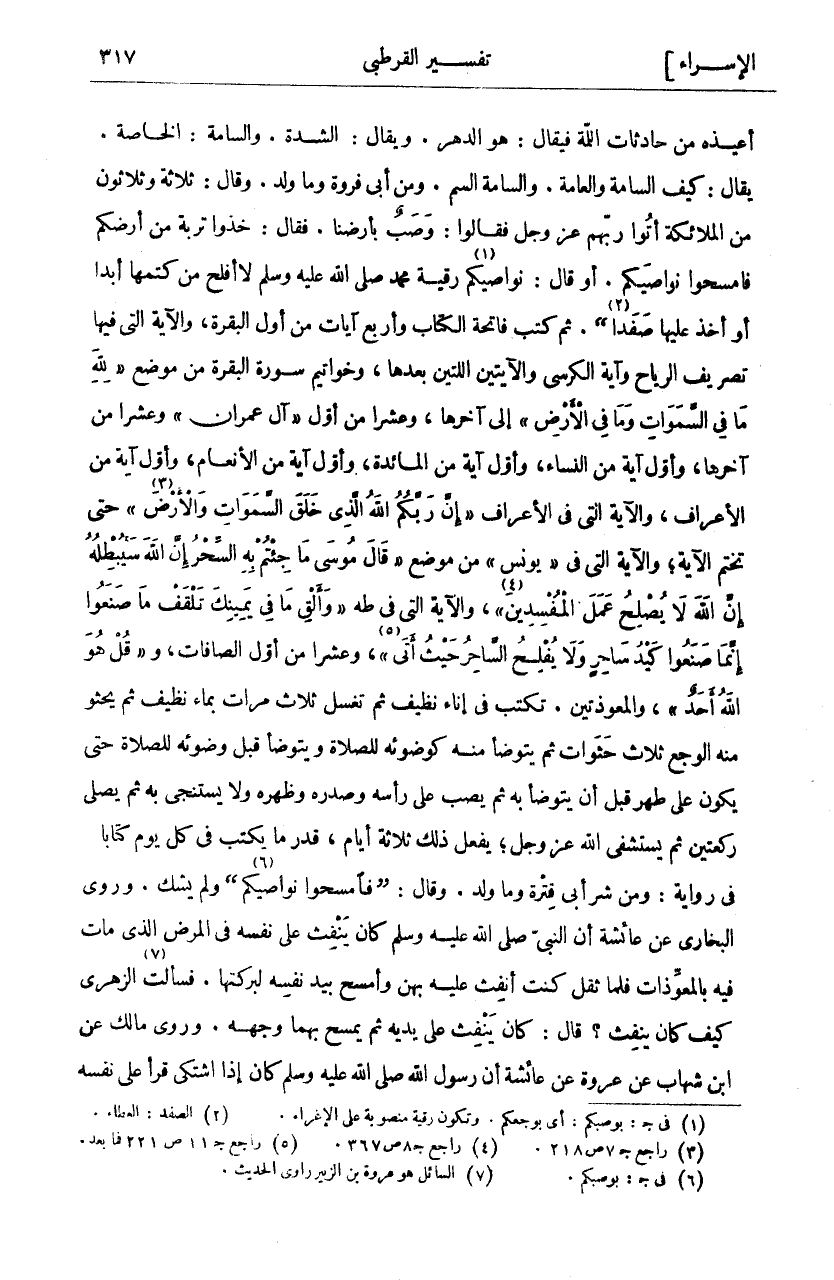 الإسراء ] تفسير القرطبى ٣١٧
أعيذه من حادثات اللَّمَّة فيقال : هو الدهر . ويقال : الشدة . والسامة : الخاصة .
يقال : كيف السامة والعامة . والسامة السم . ومن أبى فروة وما ولد . وقال : ثلاثة وثلاثون
من الملائكة أتَوا ربّهم عز وجل فقالوا : وَصَبٌ بأرضنا . فقال : خذوا تربة من أرضكم
فامسحوا نواصيكم . أو قال : نواصيكم (١) رقية محمد صلى الله عليه وسلم لا أفلح من كتمها أبدا
أو أخذ عليها صَفَدا (٢) “ . ثم كتب فاتحة الكتاب وأربع آيات من أول البقرة، والآية التى فيها
تصريف الرياح وآية الكرسى والآيتين اللتين بعدها ، وخواتيم سورة البقرة من موضع « لِلَّهِ
مَا فِي السَّمَوَاتِ وَمَا فِي الْأَرْضِ » إلى آخرها ، وعشرا من أوّل «آل عمران » وعشرا من
آخرها، وأوّل آية من النساء، وأوّل آية من المائدة، وأوّل آية من الأنعام، وأوّل آية من
الأعراف ، والآية التى فى الأعراف « إِنَّ رَبَّكُمُ اللهُ الَّذِى خَلَقَ السَّمَوَاتِ وَالْأَرْضَ (٣) » حتى
تختم الآية؛ والآية التى فى « يونس » من موضع « قَالَ مُوسَى مَا جِئْتُمْ بِهِ السِّحْرُ إِنَّ اللهَ سَيُبْطِلُهُ
إِنَّ اللهَ لَا يُصْلِحُ عَمَلَ الْمُفْسِدِينَ (٤) »، والآية التى فى طه « وَأَلْقِ مَا فِي يَمِينِكَ تَلْقَفْ مَا صَنَعُوا
إِنَّمَا صَنَعُوا كَيْدُ سَاحِرٍ وَلَا يُفْلِحُ السَّاحِرُ حَيْثُ أَتَى (٥) »، وعشرا من أوّل الصافات، و « قُلْ هُوَ
اللهُ أَحَدٌ » ، والمعوذتين . تكتب فى إناء نظيف ثم تغسل ثلاث مرات بماء نظيف ثم يحثو
منه الوجع ثلاث حَثَوات ثم يتوضأ منه كوضوئه للصلاة ويتوضأ قبل وضوئه للصلاة حتى
يكون على طهر قبل أن يتوضأ به ثم يصب على رأسه وصدره وظهره ولا يستنجى به ثم يصلى
ركعتين ثم يستشفى الله عز وجل؛ يفعل ذلك ثلاثة أيام ، قدر ما يكتب فى كل يوم كتابا
فى رواية : ومن شر أبى قِترة وما ولد . وقال : ”فامسحوا نواصيكم (٦) “ ولم يشك . وروى
البخارى عن عائشة أن النبىّ صلى الله عليه وسلم كان يَنْفِث على نفسه فى المرض الذى مات
فيه بالمعوِّذات فلما ثقل كنت أنفِث عليه بهن وأمسح بيد نفسه لبركتها . فسألت (٧) الزهرى
كيف كان ينفِث ؟ قال : كان يَنْفِث على يديه ثم يمسح بهما وجهه . وروى مالك عن
ابن شهاب عن عروة عن عائشة أن رسول الله صلى الله عليه وسلم كان إذا اشتكى قرأ على نفسه
(١) فى جـ : بوصبكم : أى بوجعكم . وتكون رقية منصوبة على الإغراء . (٢) الصفد : العطاء .
(٣) راجع جـ ٧ ص ٢١٨ . (٤) راجع جـ ٨ ص ٣٦٧ . (٥) راجع جـ ١١ ص ٢٢١ فما بعد .
(٦) فى جـ : بوصبكم . (٧) السائل هو عروة بن الزبير راوى الحديث .